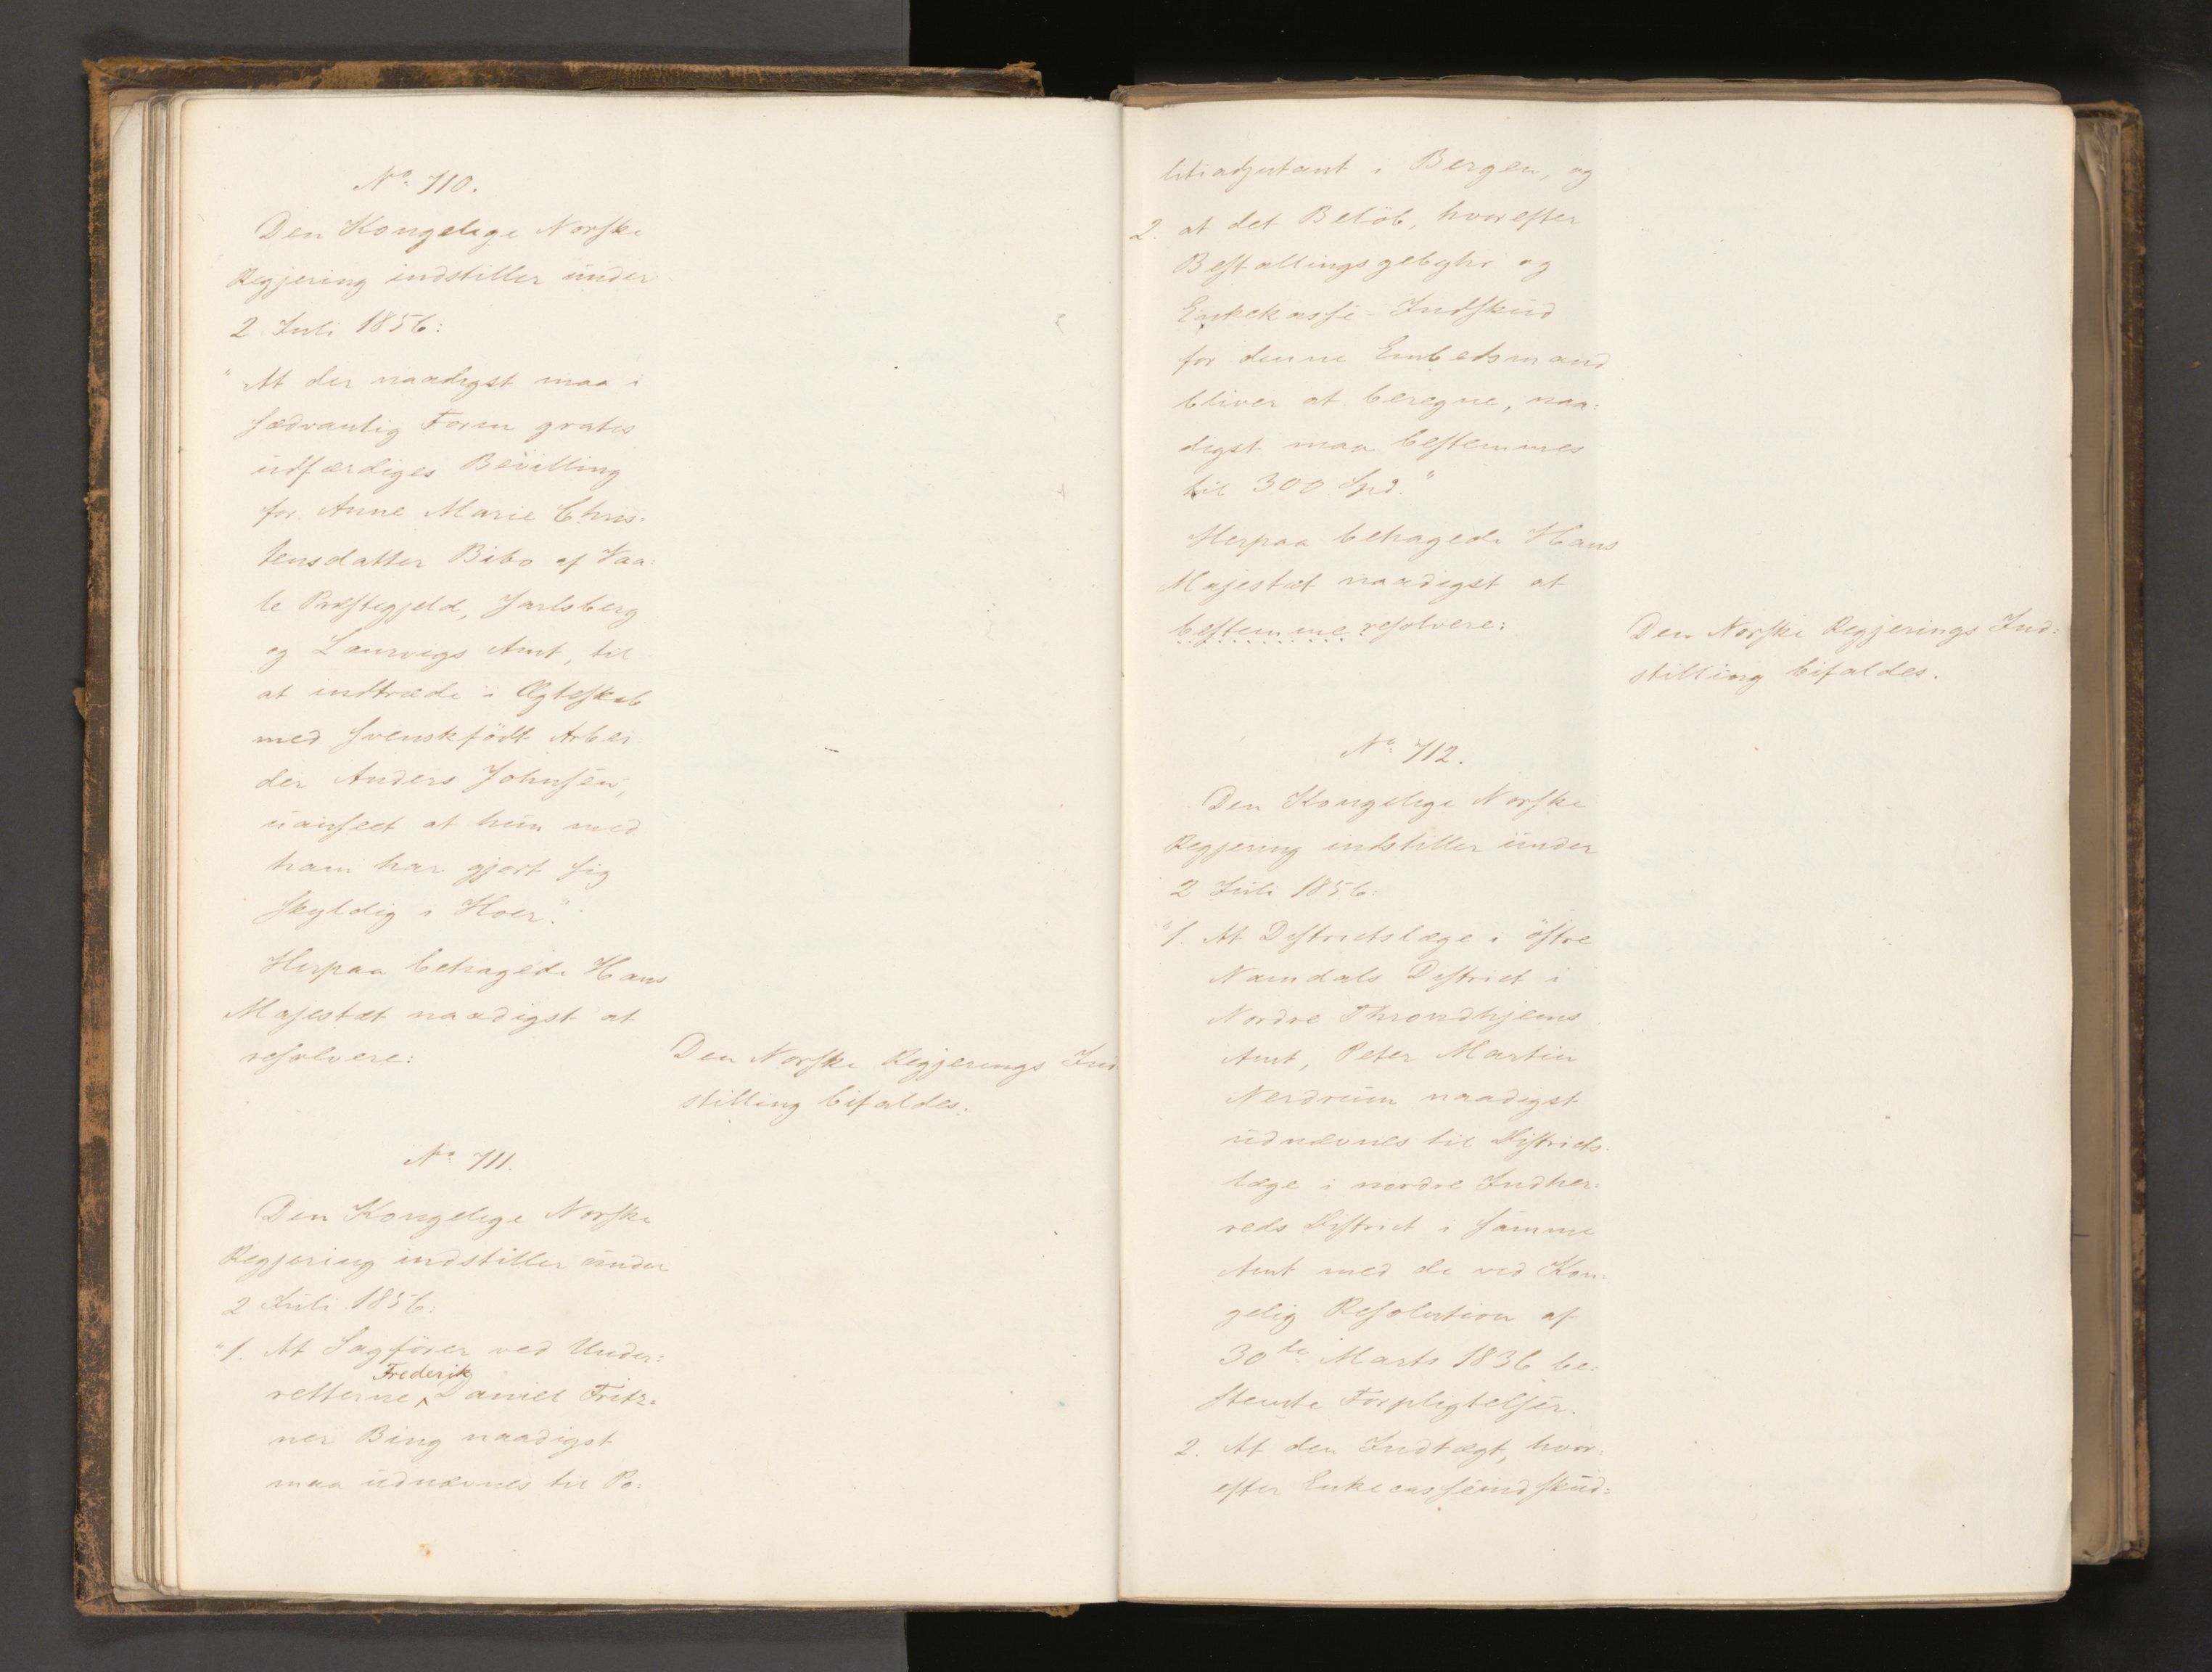 No. 710.
Den Kongelige Norske
Regjering indstiller under
2 Juli 1856:
"At der naadigst maa i
sædvanlig Form gratis
udfærdiges Bevilling
for Anne Marie Chris-
tensdatter Bibo af Vaa-
le Præstegjeld, Jarlsberg
og Laurvigs Amt, til
at indtræde i Ægteskab
med svenskfödt Arbei-
der Anders Johnsen,
uanseet at hun med
ham har gjort sig
skyldig i Hoer."
Herpaa behagede Hans
Majestæt naadigst at
resolvere:
Den Norske Regjerings Ind
stilling bifaldes.
No. 711.
Den Kongelige Norske
Regjering indstiller under
2 Juli 1856:
"1. At Sagförer ved Under=
retterne Frederik Daniel Fritz=
ner Bing naadigst
maa udnævnes til Po-
litiadjutant i Bergen, og
2. at det Belöb, hvorefter
Bestallingsgebyhr og
Enkekasse-Indskud
for denne Embedsmand
bliver at beregne, naa=
digst maa bestemmes
til 300 Spd."
Herpaa behagede Hans
Majestæt naadigst at
bestemme resolvere:
Den Norske Regjerings Ind=
stilling bifaldes.
No. 712.
Den Kongelige Norske
Regjering indstiller under
2 Juli 1856:
"1. At Districtslæge i östre
Namdals District i
Nordre Throndhjems
Amt, Peter Martin
Nerdrum naadigst
udnævnes til Districts-
læge i nordre Indher=
reds District i samme
Amt med de ved Kon=
gelig Resolution af
30te Marts 1836 be=
stemte Forpligtelser.
2. At den Indtægt, hvor=
efter Enkecasseindskud=